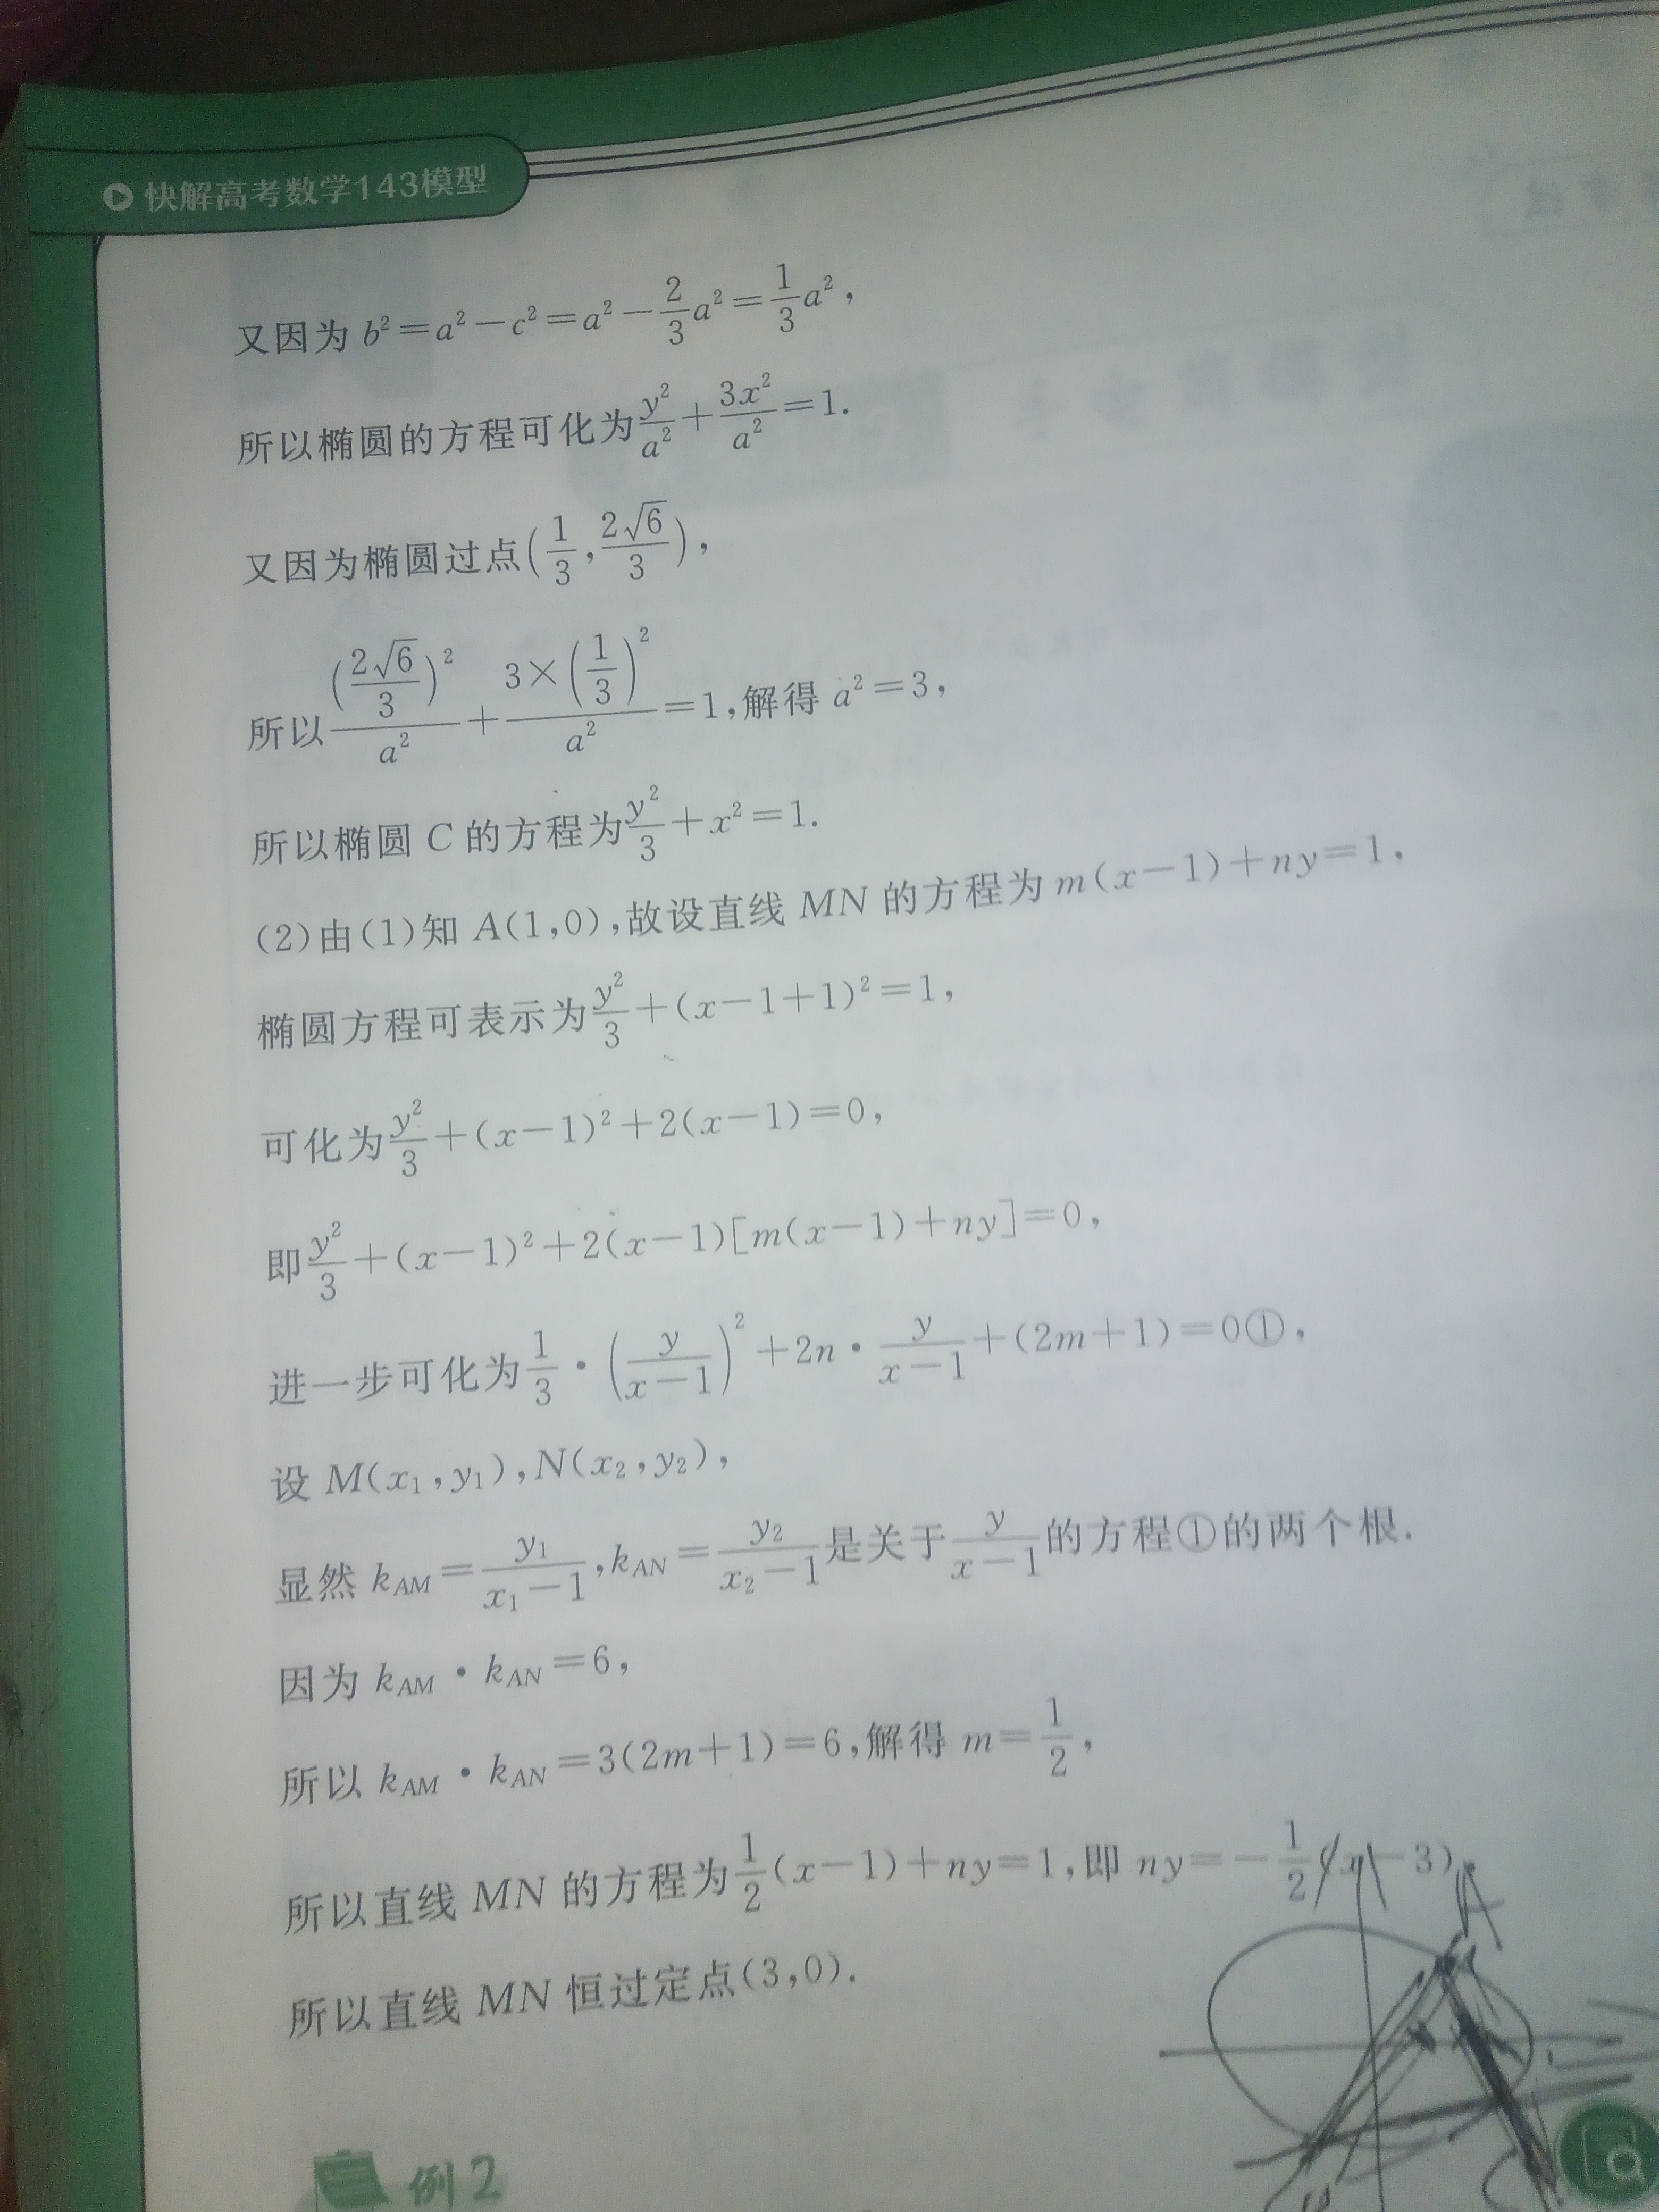 快解高考数学143模型
又因为 b²=a²-c²=a²-\frac{2}{3}a²=\frac{1}{3}a²,
所以椭圆的方程可化为\frac{y²}{a²}+\frac{3x²}{a²}=1.
又因为椭圆过点(\frac{1}{3},\frac{2\sqrt{6}}{3}),
所以\frac{(\frac{2\sqrt{6}}{3})²}{a²}+\frac{3×(\frac{1}{3})²}{a²}=1,解得 a²=3,
所以椭圆 C 的方程为\frac{y²}{3}+x²=1.
(2)由(1)知 A(1,0),故设直线 MN 的方程为 m(x-1)+ny=1,
椭圆方程可表示为\frac{y²}{3}+(x-1+1)²=1,
可化为\frac{y²}{3}+(x-1)²+2(x-1)=0,
即\frac{y²}{3}+(x-1)²+2(x-1)[m(x-1)+ny]=0,
进一步可化为\frac{1}{3}·(\frac{y}{x-1})²+2n·\frac{y}{x-1}+(2m+1)=0①,
设 M(x₁,y₁),N(x₂,y₂),
显然 k_{AM}=\frac{y₁}{x₁-1},k_{AN}=\frac{y₂}{x₂-1}是关于\frac{y}{x-1}的方程①的两个根.
因为 k_{AM}·k_{AN}=6,
所以 k_{AM}·k_{AN}=3(2m+1)=6,解得 m=\frac{1}{2},
所以直线 MN 的方程为\frac{1}{2}(x-1)+ny=1,即 ny=-\frac{1}{2}(x-3),
A
所以直线 MN 恒过定点(3,0).
例2